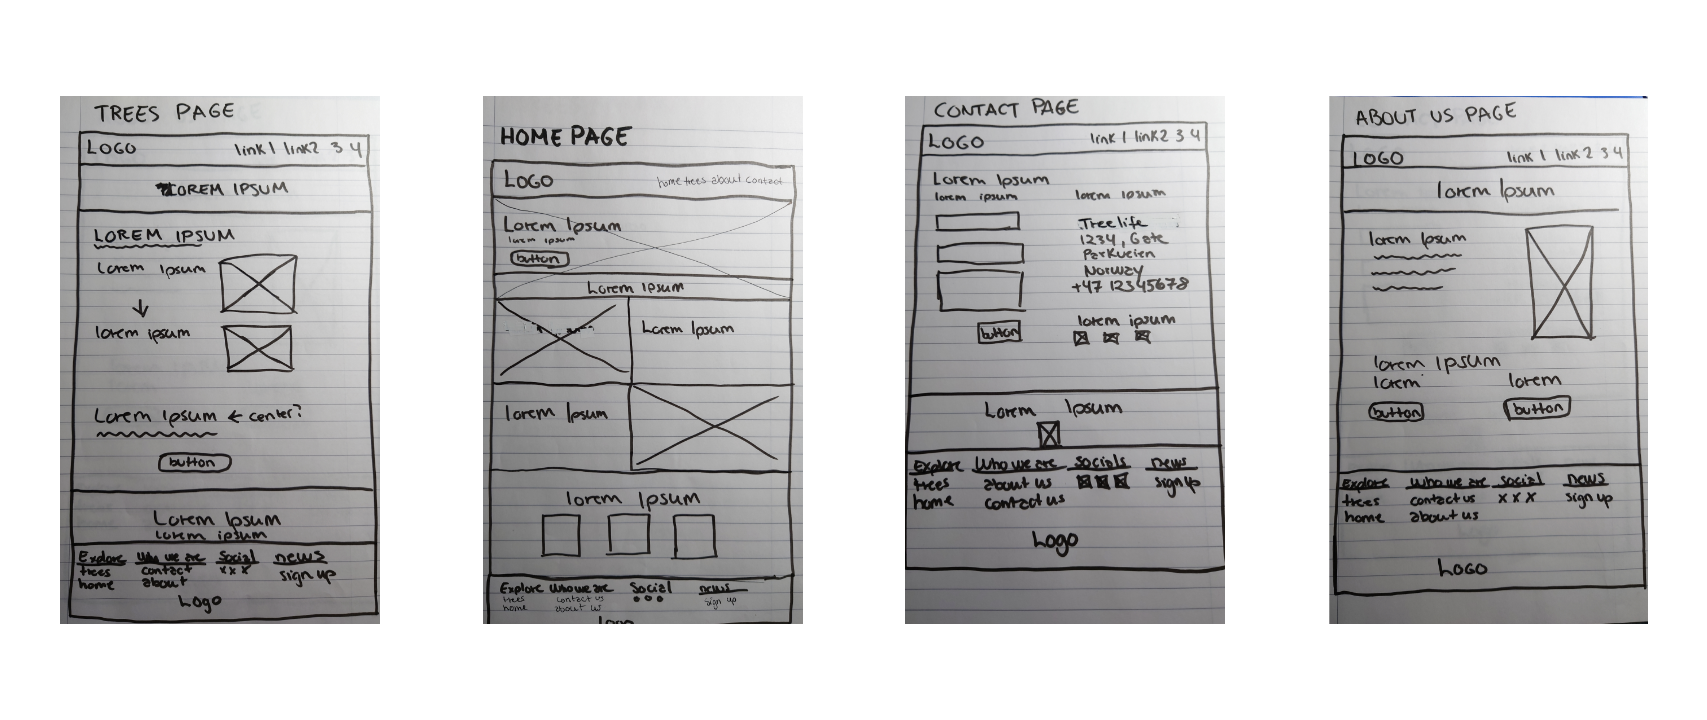 TREES PAGE
LOGO link 1 link2 3 4
LOREM IPSUM
LOREM IPSUM
Lorem Ipsum
lorem ipsum
Lorem Ipsum ← center?
button
Lorem Ipsum
lorem ipsum
Explore Who we are Social news
trees contact x x x sign up
home about
Logo
HOME PAGE
LOGO home trees about contact
Lorem Ipsum
lorem ipsum
button
Lorem Ipsum
Lorem Ipsum
lorem Ipsum
lorem Ipsum
Explore Who we are Social news
trees contact us sign up
home about us
Logo
CONTACT PAGE
LOGO link 1 link2 3 4
Lorem Ipsum
lorem ipsum lorem ipsum
Treelife
1234, Gate
Parkveien
Norway
+47 12345678
lorem ipsum
button
Lorem Ipsum
Explore Who we are Socials news
trees about us sign up
home contact us
Logo
ABOUT US PAGE
LOGO link 1 link 2 3 4
lorem Ipsum
lorem Ipsum
lorem Ipsum
lorem lorem
button button
Explore Who we are social news
trees contact us x x x sign up
home about us
LOGO